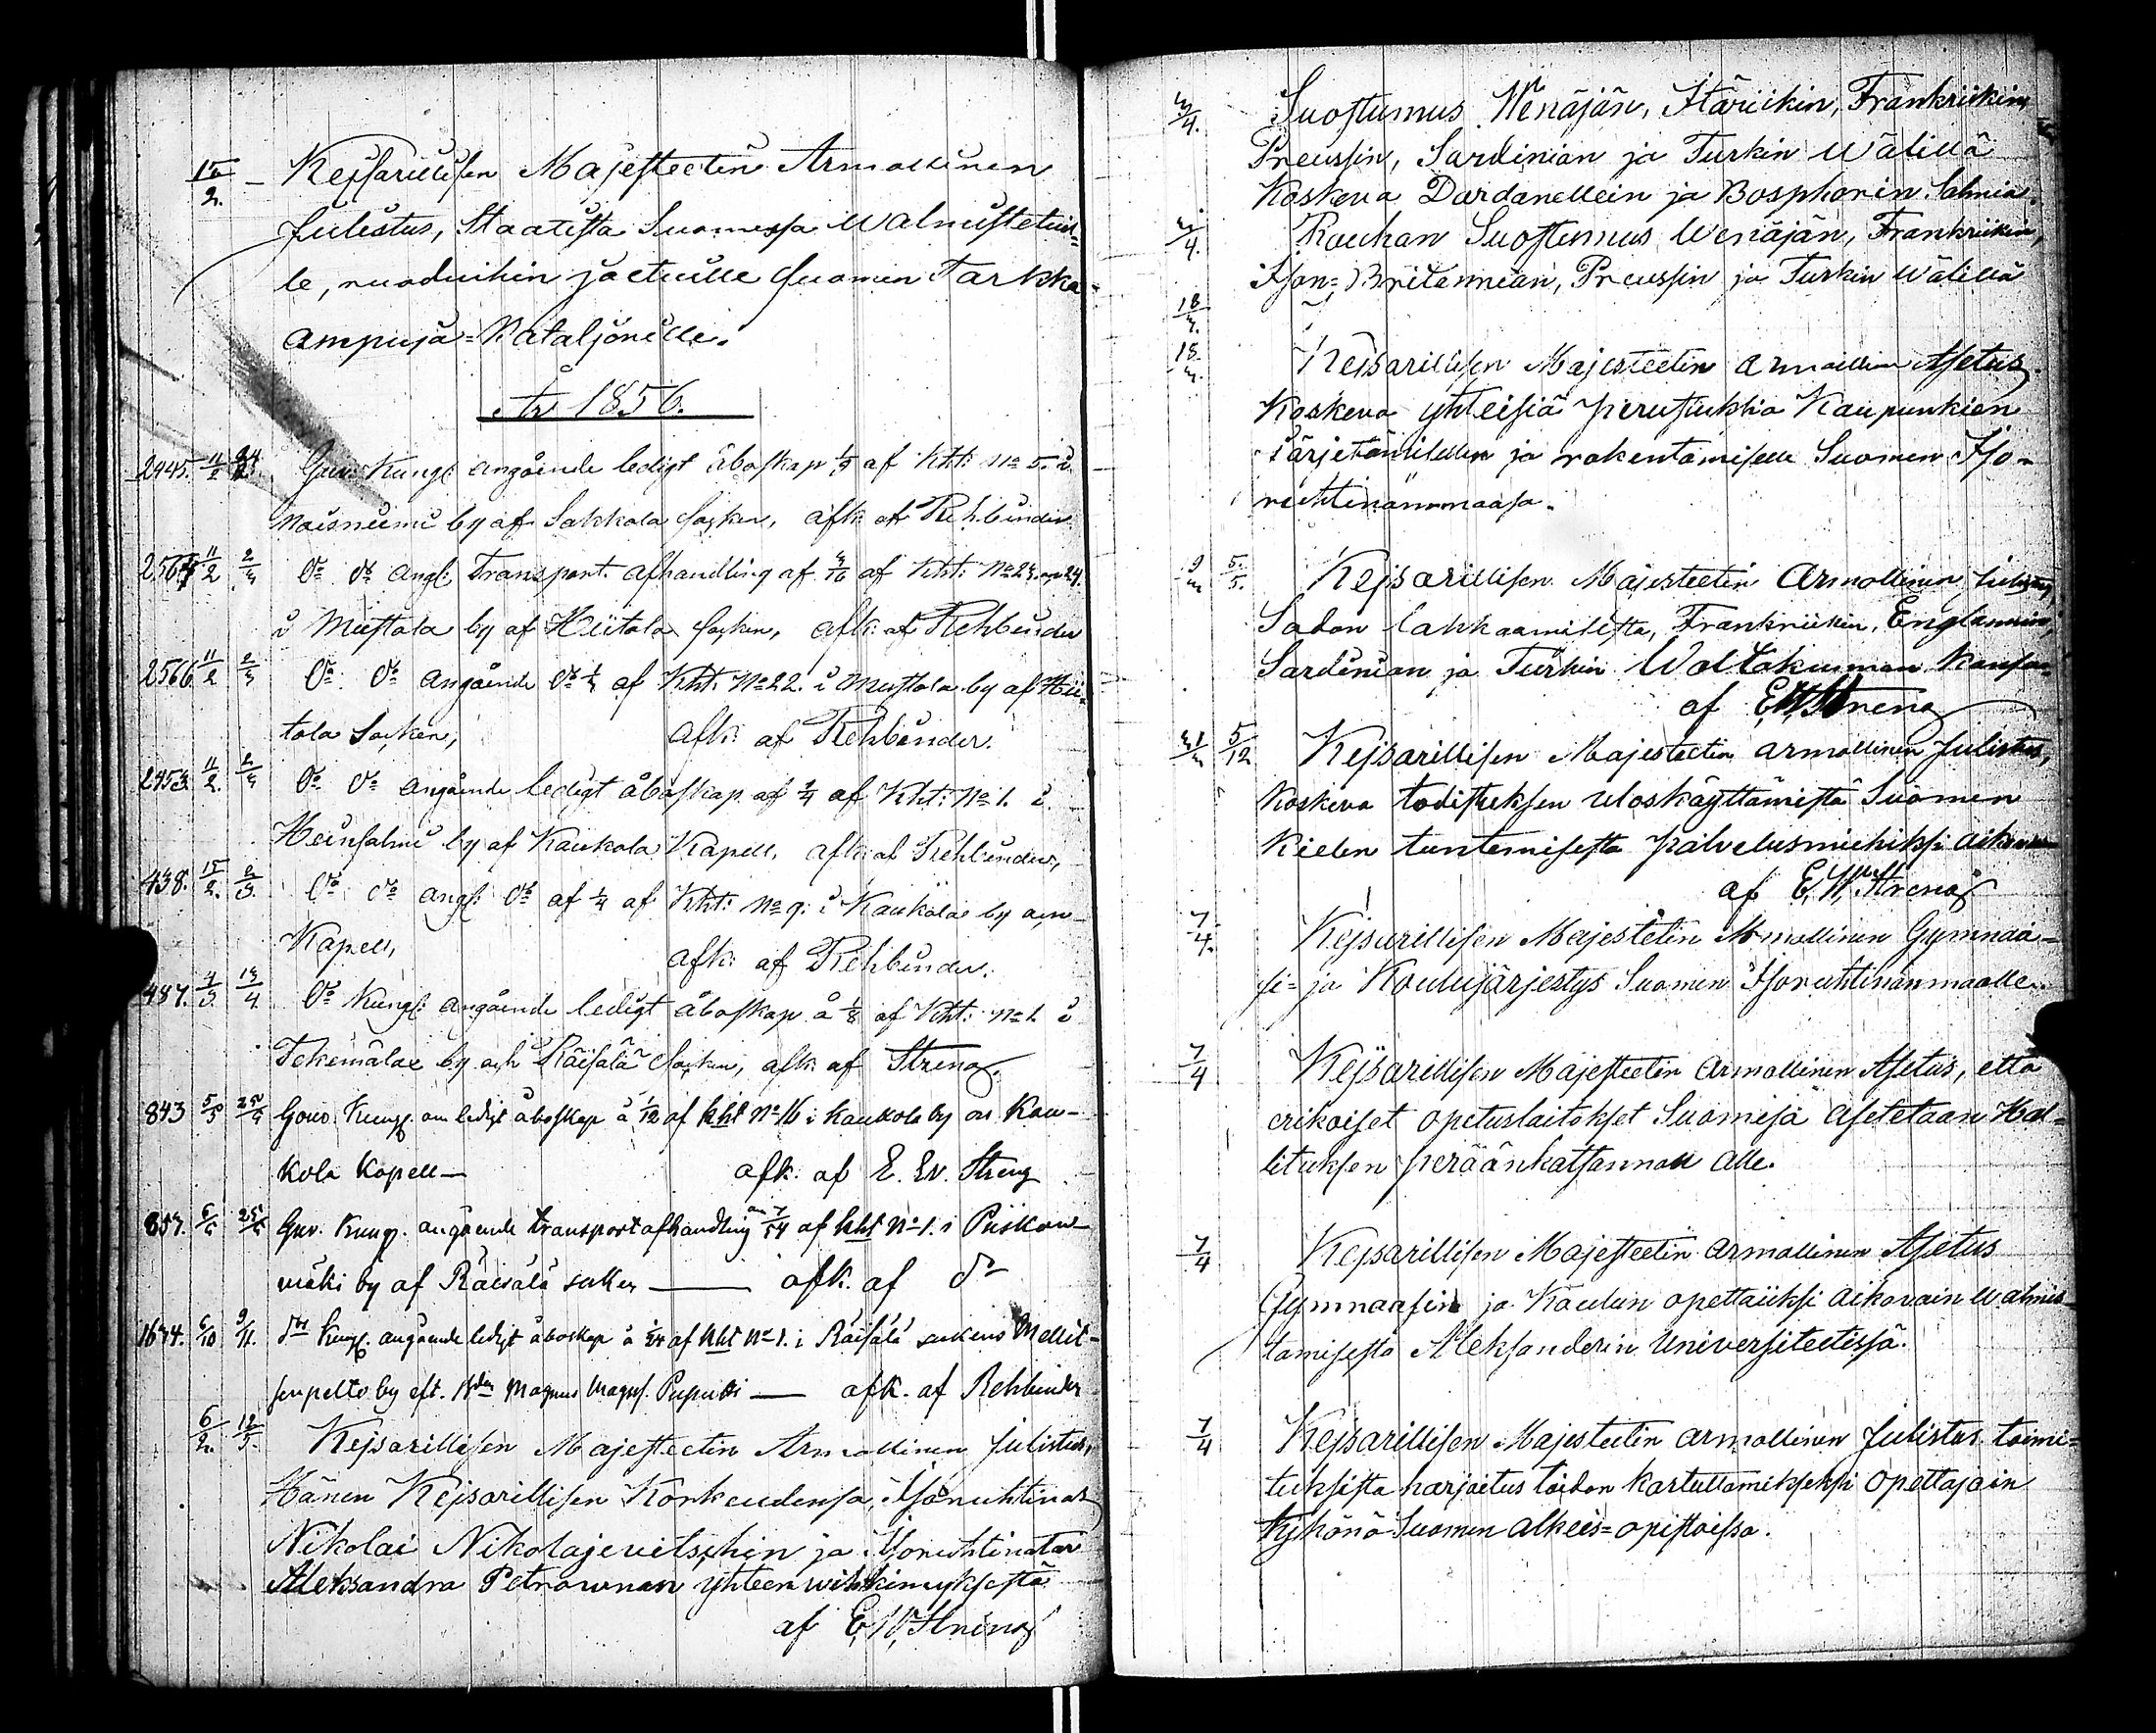 15/2. Kejsarillisen Majesteetin Armollinen
Julistus, Staatista Suomessa walmistetuil-
le, ruoduihin jaetuille Suomen Tarkka-
ampuja-Bataljonille.
År 1856.
2445. 11/2 Guv: Kungl: angående ledigt åboskap 1/3 af Kht: No 5. i
Noisniemi by af Sakkola socken, afk: af Rehbinder
11/2 2/3 Do Do angl: Transport. afhandling af 3/16 af Kht: No 23 24.
i Miistala by af Hiitola socken, afk: af Rehbinder
2566 11/2 2/3 Do Do angående Do 1/3 af Kht: No 22. i Mustola by af Hii-
tola Socken, afk: af Rehbinder.
2453. 11/2. 2/3 Do Do angående ledigt åboskap af 3/4 af Kht: No 1. i
Heinsalmi by af Kaukola Kapell, afk: af Rehbinder,
438. 15/2. 2/3. Do Do angl: Do af 1/4 af Kht: No 9. i Kaukola by
Kapell, afk: af Rehbinder.
487. 4/3. 13/4 Do Kungl: angående ledigt åboskap å 1/8 af Kht: No 1. i
Tekemälae by och Räisälä Socken, afk: af Streng.
843 5/5 25/5 Guv. Kungl. om ledigt åboskap å 1/12 af kht No 16 i Kaukola by as Kau-
kola Kapell— afk. af E. W. Streng
857. Guv. Kung. angående transportafhandling an 7/54 af kht No 1. i Piiskow-
mäki by af Räisälä socken — afk. af do
1674. 6/10 9/11. do Kungl. angående ledigt åboskap å 1/24 af kht No 1. i Räisälä sockens Mellit-
senpelto by eft. Bden Magnus Magnuss. Puputti — afk. af Rehbinder
6/2. 12/5. Kejsarillisen Majesteetin Armollinen Julistus,
Hänen Kejsarillisen Korkeudensa, Isoruhtinas
Nikolai Nikolajevitschin ja Isoruhtinatar
Aleksandra Petrownan yhteen wihkimyksestä
af E. W. Streng
3/4. Suostumus Wenäjän, Itäriikin, Frankriikin,
Preussin, Sardinian ja Turkin wälillä
Koskeva Dardanellein ja Bosphorin Salmia.
3/4. Rauhan Suostumus Wenäjän, Frankriikin,
Ison-Britannian, Preussin ja Turkin wälillä
18/3.
18/3. Kejsarillisen Majesteetin armollinen Asetus,
Koskeva yhteisiä perustuksia Kaupunkien
järjestämiselle ja rakentamiselle Suomen Iso-
ruhtinanmaasa.
9/3 5/5. Kejsarillisen Majesteetin Armollinen Julistus,
Sodan lakkaamisesta, Frankriikin, Englannin,
Sardinian ja Turkin Waltakunnan kanssa.
af E. W. Streng
31/3 5/12 Kejsarillisen Majesteetin armollinen Julistus,
Koskeva todistuksen uloskäyttämistä Suomen
Kielen tuntemisesta palvelusmiehiksi aikovain
af E. W. Streng
7/4. Kejsarillisen Majestetin Armollinen Gymnaa-
si- ja Koulujärjestys Suomen Isoruhtinanmaalle.
7/4 Kejsarillisen Majesteetin Armollinen Asetus, että
erikoiset opetuslaitokset Suomesa asetetaan Hal-
lituksen peräänkatsannon alle.
7/4 Kejsarillisen Majesteetin armollinen Asetus
Gymnaasin ja Koulun opettaiksi aikovain walmis-
tamisesta Aleksanderin Universiteetissä.
7/4 Kejsarillisen Majesteetin armollinen Julistus toimi-
tuksista harjoitus taidon kartuttamiseksi opettajain
Kykönä Suomen alkeis-opistoissa.